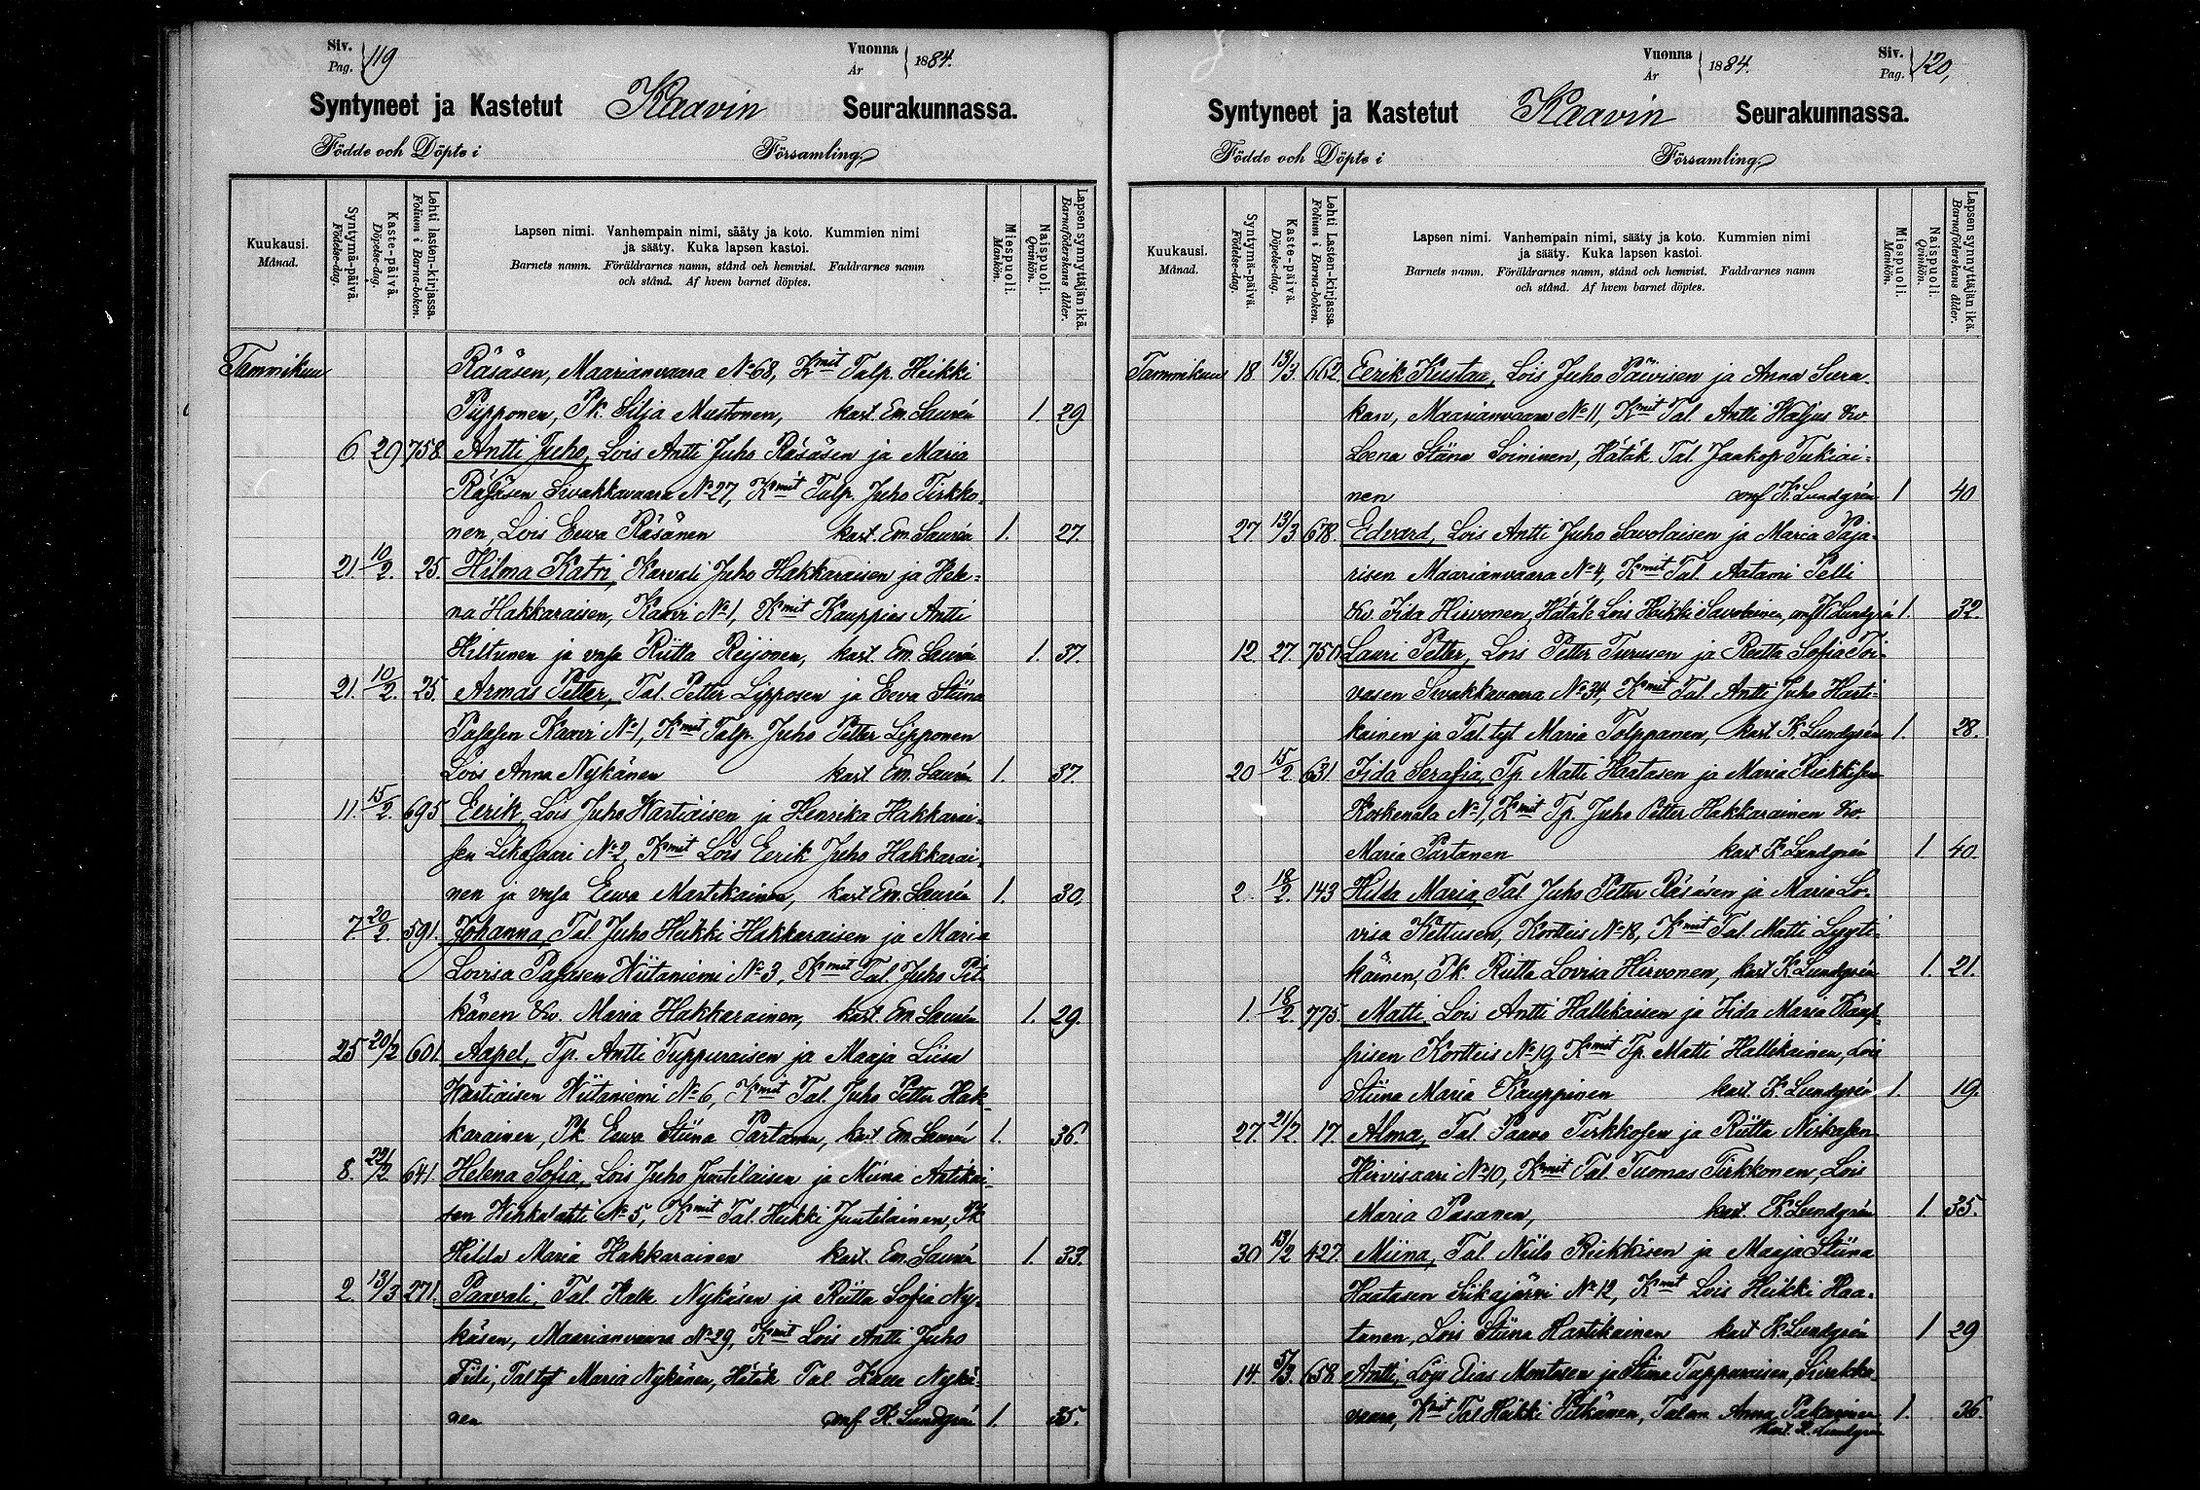 Siv.
Pag. 119
Vuonna
År 1884.
Syntyneet ja Kastetut Kaavin Seurakunnassa.
Födde och Döpte i Församling.
Kuukausi.
Månad.
Syntymä-päivä.
Födelse-dag.
Kaste-päivä.
Döpelse-dag.
Lehti lasten-kirjassa.
Folium i Barna-boken.
Lapsen nimi. Vanhempain nimi, sääty ja koto. Kummien nimi
ja sääty. Kuka lapsen kastoi.
Barnets namn. Föräldrarnes namn, stånd och hemvist. Faddrarnes namn
och stånd. Af hvem barnet döptes.
Miespuoli.
Mankön.
Naispuoli.
Qvinkön.
Lapsen synnyttäjän ikä.
Barnaföderskans ålder.
Tammikuu Räsäsen, Maarianvaara No 68, Kmit Talp. Heikki
Piipponen, Pk. Silja Mustonen, kast. Em. Laurén 1. 29
6 29 758 Antti Juho, Lois Antti Juho Räsäsen ja Maria
Räsäsen Sivakkavaara No 27, Kmit Talp. Juho Tirkko-
nen, Lois Eewa Räsänen kast. Em. Laurén 1. 27.
21. 10/2. 25. Hilma Katri, Karvali Juho Hakkaraisen ja Hele-
na Hakkaraisen, Kaavi No 1, Kmit Kauppias Antti
Hiltunen ja vmsa Riitta Reijonen, kast. Em. Laurén 1. 37.
21. 10/2. 25. Armas Petter, Tal. Petter Lipposen ja Eeva Stiina
Pasasen Kaavi No 1, Kmit Talp. Juho Petter Lipponen
Lois Anna Nykänen kast. Em. Laurén 1. 37.
11. 15/2. 695 Eerik, Lois Juho Hartiaisen ja Henrika Hakkarai-
sen Likosaari No 2, Kmit Lois Eerik Juho Hakkarai-
nen ja vmsa Eewa Martikainen, kast. Em. Laurén 1. 30.
7. 20/2. 591. Johanna, Tal Juho Heikki Hakkaraisen ja Maria
Lovisa Pasasen Wiitaniemi No 3, Kmit Tal. Juho Pit-
känen &w. Maria Hakkarainen, kast. Em. Laurén 1. 29.
25 20/2 601. Aapel, Tp. Antti Tuppuraisen ja Maaja Liisa
Hartiaisen Wiitaniemi No 6, Kmit Tal. Juho Petter Hak-
karainen, Pk. Eewa Stiina Partanen, kast Em. Laurén 1. 36.
8. 29/2 641. Helena Sofia, Lois Juho Juutilaisen ja Miina Antikai-
sen Wehkalahti No 5, Kmit Tal. Heikki Juutilainen, Pk
Hilda Maria Hakkarainen kast. Em. Laurén 1. 33.
2. 13/3 271. Paavali, Tal. Kalle Nykäsen ja Riitta Sofia Ny-
käsen, Maarianvaara No 29, Kmit Lois Antti Juho
Tiili, Tal tyt Maria Nykänen, Hätäk Tal. Kalle Nykä-
nen conf K. Lundgrén 1. 35.
Vuonna
År 1884.
Siv.
Pag. 120,
Syntyneet ja Kastetut Kaavin Seurakunnassa.
Födde och Döpte i Församling.
Kuukausi.
Månad.
Syntymä-päivä.
Födelse-dag.
Kaste-päivä.
Döpelse-dag.
Lehti Lasten-kirjassa.
Folium i Barna-boken.
Lapsen nimi. Vanhempain nimi, sääty ja koto. Kummien nimi
ja sääty. Kuka lapsen kastoi.
Barnets namn. Föräldrarnes namn, stånd och hemvist. Faddrarnes namn
och stånd. Af hvem barnet döptes.
Miespuoli.
Mankön.
Naispuoli.
Qvinkön.
Lapsen synnyttäjän ikä.
Barnaföderskans ålder.
Tammikuu 18. 13/3. 662 Eerik Kustaa, Lois Juho Päivisen ja Anna Sura-
kan, Maarianvaara No 11, Kmit Tal. Antti Haljus &w.
Leena Stiina Soininen, Hätäk. Tal. Jaakop Tukiai-
nen conf K. Lundgrén 1 40
27 13/3 678. Edvard, Lois Antti Juho Savolaisen ja Maria Paja-
risen Maarianvaara No 4, Kmit Tal. Aatami Pelli
&w. Iida Hirvonen, Hätäk Lois Heikki Savolainen, conf K. Lundgrén 1. 32.
12. 27. 750 Lauri Petter, Lois Petter Turusen ja Reetta Sofia Toi-
vasen Sivakkavaara No 34, Kmit Tal. Antti Juho Harti-
kainen ja Tal. tyt Maria Tolppanen, kast. K. Lundgrén 1. 28.
20 15/2 631. Iida Serafia, Tp. Matti Haatasen ja Maria Riekkisen
Koskenala No 1, Kmit Tp. Juho Petter Hakkarainen &w.
Maria Partanen kast K. Lundgrén 1 40.
2. 18/2. 143 Hilda Maria, Tal Juho Petter Räsäsen ja Maria Lo-
visa Kettusen, Kortteis No 18, Kmit Tal. Matti Lyyti-
käinen, Pk. Riitta Lovisa Hirvonen, kast K. Lundgrén 1. 21.
1. 18/2. 775. Matti, Lois Antti Hallikaisen ja Iida Maria Kaup-
pisen Kortteis No 19 Kmit Tp. Matti Hallikainen, Lois
Stiina Maria Kauppinen kast. K. Lundgrén 1. 19.
27. 21/2. 17. Alma, Tal. Paavo Tirkkosen ja Riitta Niskasen
Hirvisaari No 10, Kmit Tal. Tuomas Tirkkonen, Lois
Maria Pasanen, kast. K. Lundgrén 1. 35.
30 13/2 427. Miina, Tal. Niilo Riekkisen ja Maaja Stiina
Haatasen Siikajärvi No 12, Kmit Lois Heikki Haa-
tanen, Lois Stiina Hartikainen kast K. Lundgrén 1 29
14 5/3. 658. Antti, Lois Elias Montosen ja Stiina Tuppuraisen, Sivakka-
vaara, Kmit Tal Heikki Pitkänen, Tal.em Anna Pakarinen 1. 36.
kast. K. Lundgrén